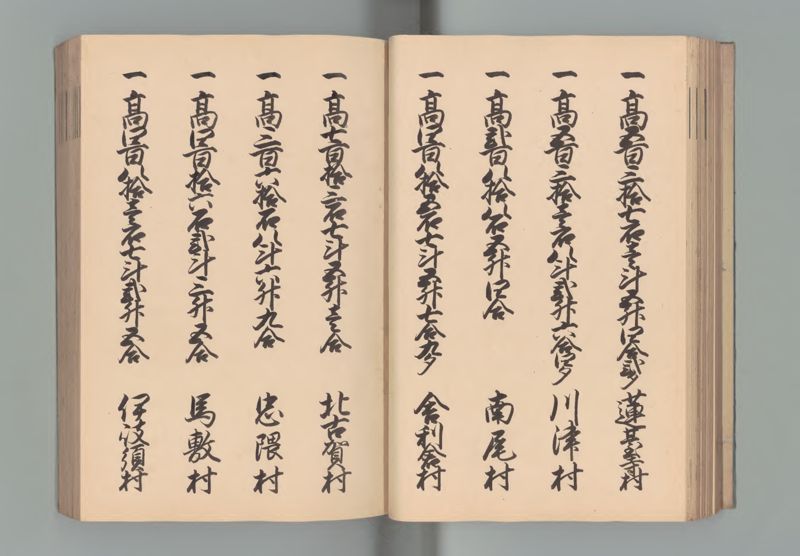 一 高五百三拾七石壱斗五升四合弐夕 蓮台寺村
一 高五百三拾壱石八斗弐升六合四夕 川津村
一 高弐百八拾八石五升四合 南尾村
一 高四百八拾五石七斗五升七合九夕 舎利倉村
一 高七百拾三石七斗五升壱合 北古賀村
一 高三百六拾石八斗六升九合 忠隈村
一 高四百拾六石弐斗三升五合 馬敷村
一 高四百八拾壱石七斗弐升五合 伊岐須村